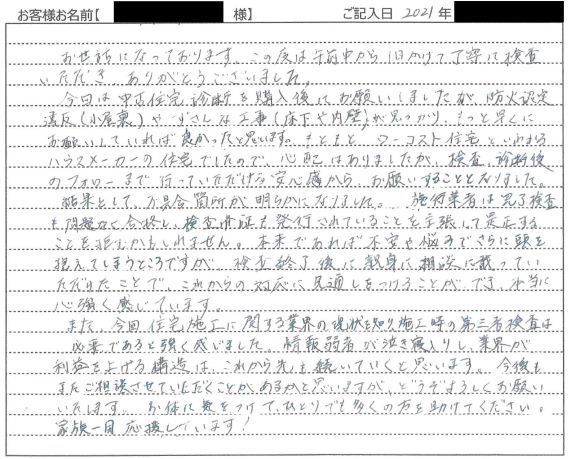 お客様お名前【 様】 ご記入日 2021年
お世話になっております。この度は午前中から1日かけて丁寧に検査
いただき、ありがとうございました。
今回は中古住宅診断を購入後にお願いしましたが、防火認定
違反(小屋裏)やずさんな工事(床下や内壁)が見つかり、もっと早くに
お願いしていれば良かったと思います。もともと、ローコスト住宅といわれる
ハウスメーカーの住宅でしたので、心配はありましたが、検査、診断後
のフォローまで行っていただける安心感から、お願いすることとなりました。
結果として、不具合箇所が明らかになりました。施行業者は完了検査
も問題なく合格し、検査済証も発行されていることを主張して是正する
ことを拒むかもしれません。本来であれば不安や悩みでさらに頭を
抱えてしまうところですが、検査終了後に親身に相談に載ってい
ただけたことで、これからの対応に見通しをつけることができ、本当に
心強く感じています。
また、今回住宅施工に関する業界の現状を知り施工時の第三者検査は
必要であると強く感じました。情報弱者が泣き寝入りし、業界が
利益を上げる構造は、これから先も続いていくと思います。今後も
またご相談させていただくことがあるかと思いますが、どうぞよろしくお願い
いたします。お体に気をつけて、ひとりでも多くの方を助けてください。
家族一同応援しています!